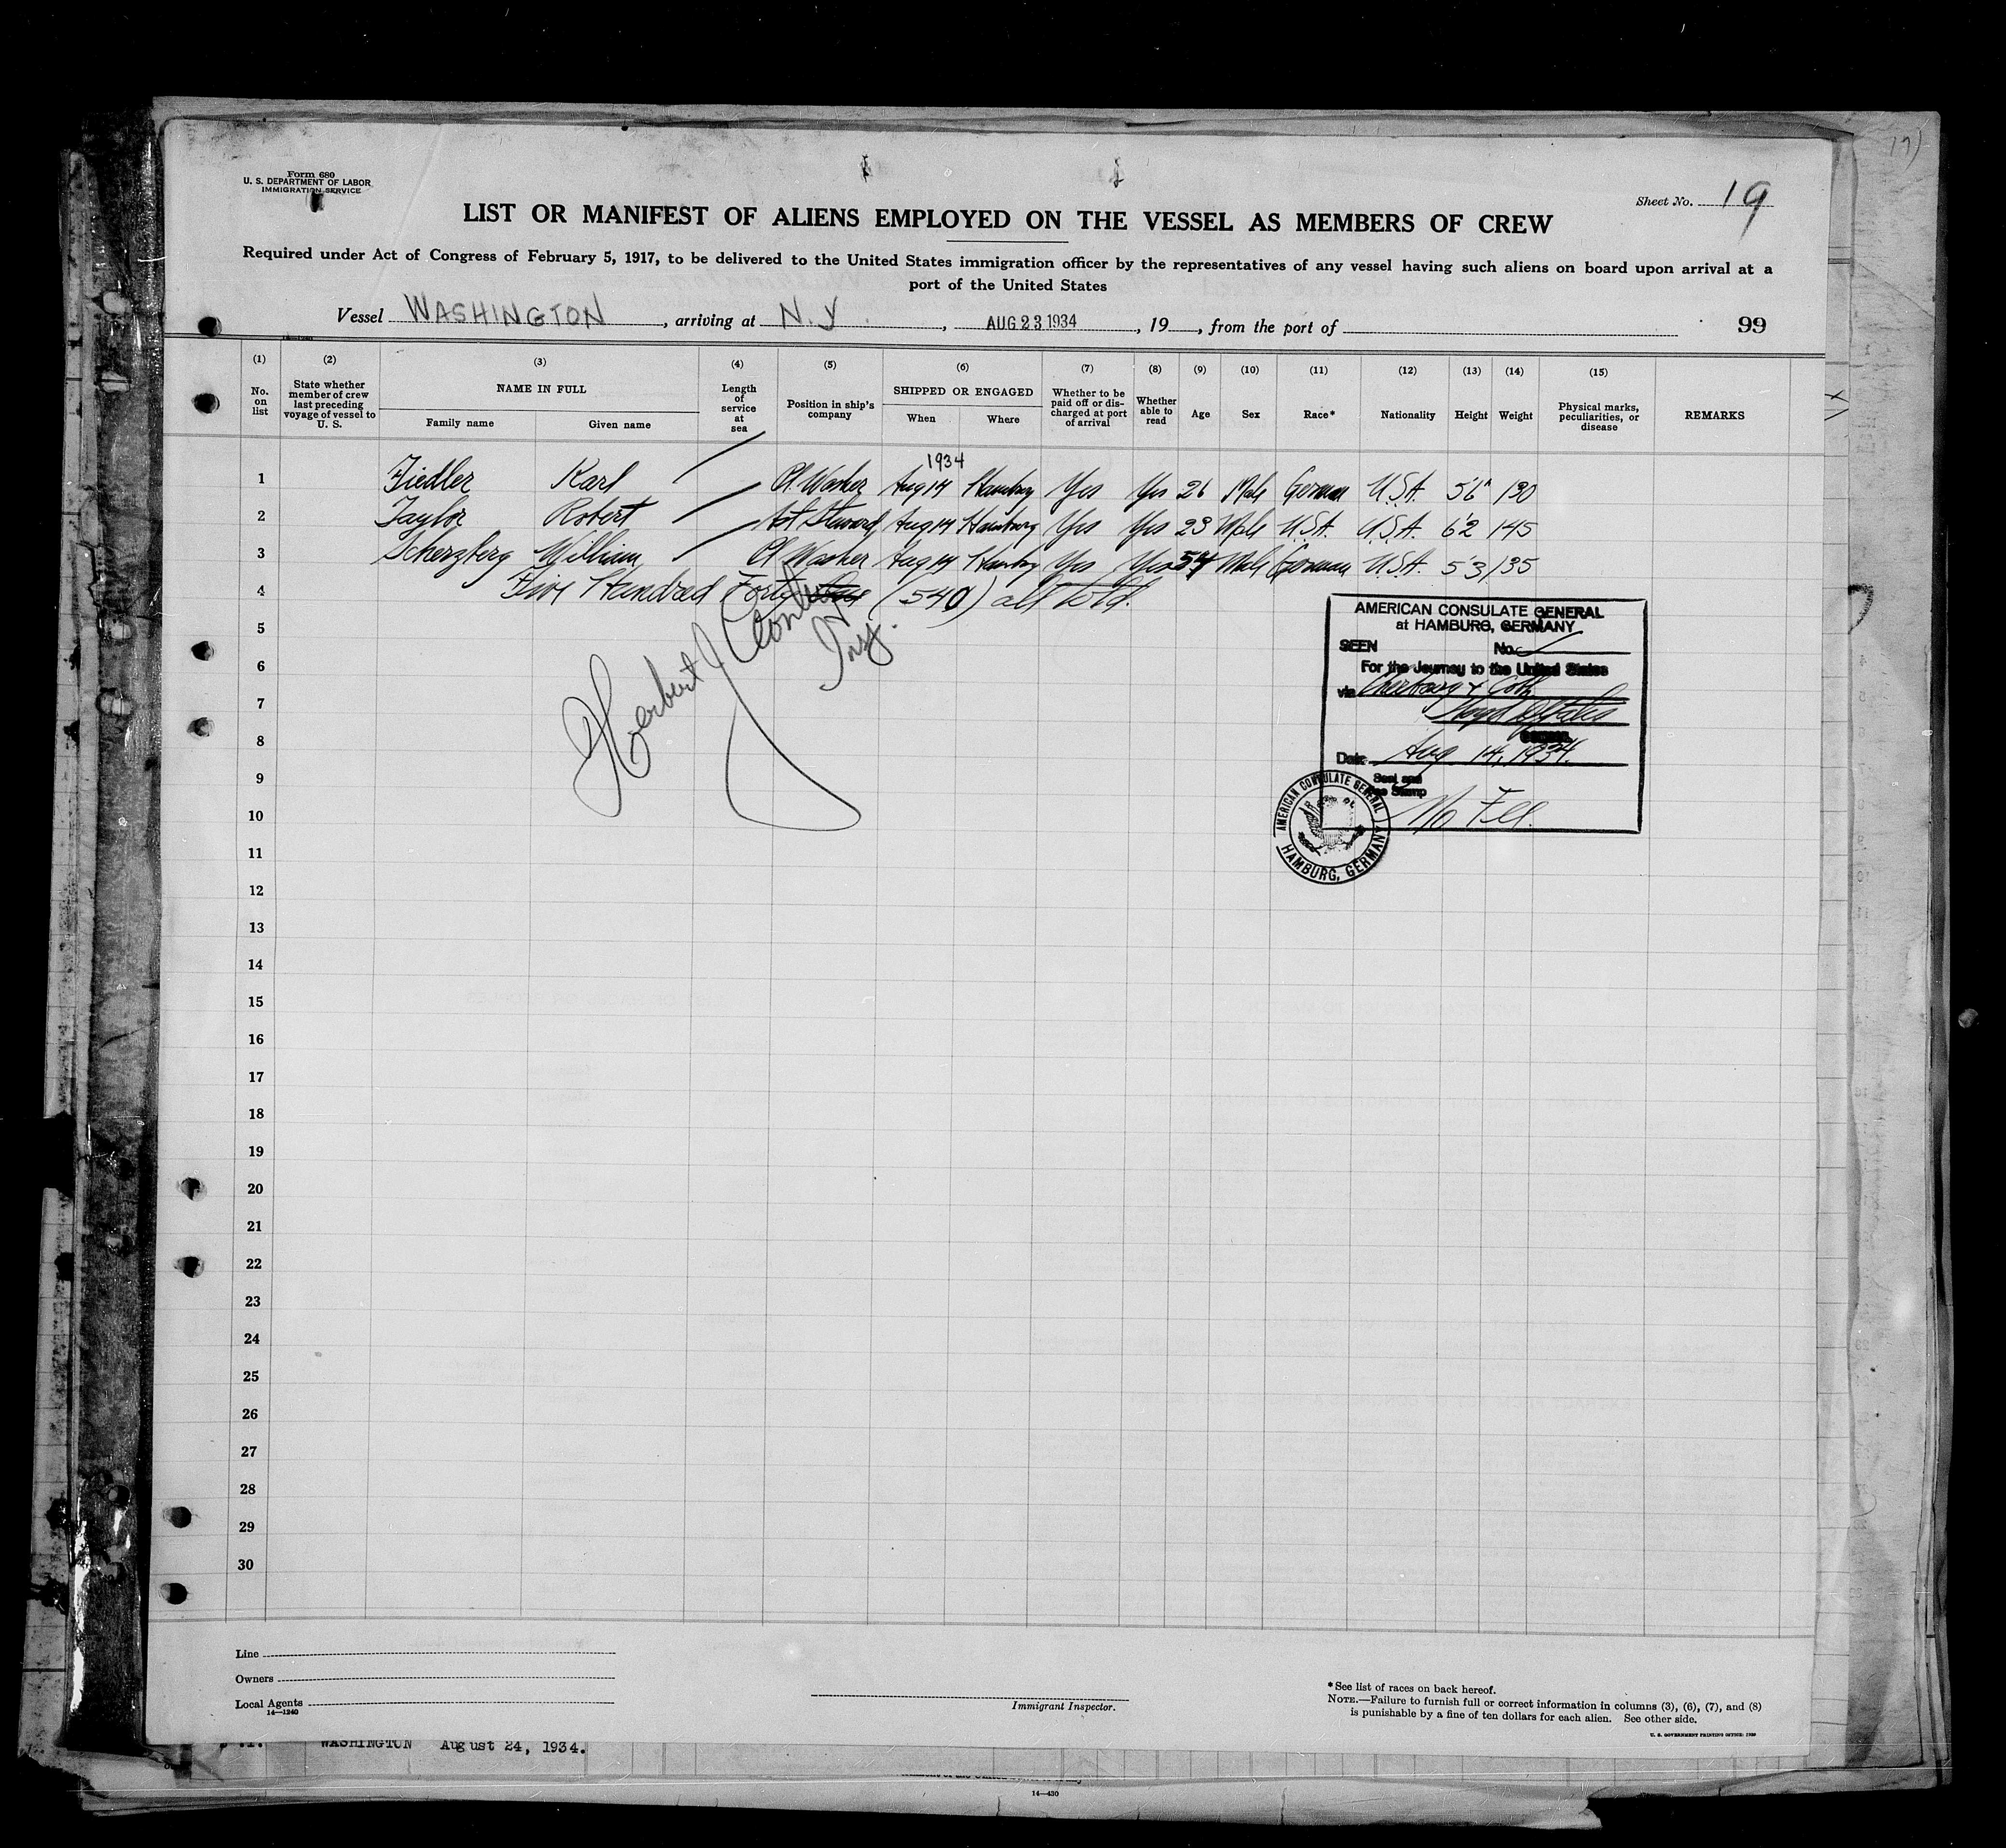 19)
Form 680
U. S. DEPARTMENT OF LABOR
IMMIGRATION SERVICE
Sheet No. 19
LIST OR MANIFEST OF ALIENS EMPLOYED ON THE VESSEL AS MEMBERS OF CREW
Required under Act of Congress of February 5, 1917, to be delivered to the United States immigration officer by the representatives of any vessel having such aliens on board upon arrival at a
port of the United States
Vessel WASHINGTON, arriving at N. Y., AUG 23 1934, 19__, from the port of 99
(1) (2) (3) (4) (5) (6) (7) (8) (9) (10) (11) (12) (13) (14) (15)
No. on list
State whether member of crew last preceding voyage of vessel to U. S.
NAME IN FULL
Family name Given name
Length of service at sea
Position in ship's company
SHIPPED OR ENGAGED
When Where
Whether to be paid off or discharged at port of arrival
Whether able to read
Age Sex Race* Nationality Height Weight
Physical marks, peculiarities, or disease
REMARKS
1934
1 Fiedler Karl Pl. Washer Aug 14 Hamburg Yes Yes 26 Male German U.S.A. 5'6" 130
2 Taylor Robert Ast Steward Aug 14 Hamburg Yes Yes 23 Male U.S.A. U.S.A. 6'2 145
3 Scherzberg William Pl Washer Aug 14 Hamburg Yes Yes 54 Male German U.S.A. 5'3 135
4 Five Hundred Forty (540) all told.
Herbert J
Insp.
5
6
7
8
9
10
11
12
13
14
15
16
17
18
19
20
21
22
23
24
25
26
27
28
29
30
AMERICAN CONSULATE GENERAL
at HAMBURG, GERMANY
SEEN No.
For the Journey to the United States
via Cherbourg
Date Aug 14, 1934.
Seal and
Fee Stamp
No Fee.
AMERICAN CONSULATE GENERAL
HAMBURG, GERMANY
Line
Owners
Local Agents
14—1240
Immigrant Inspector.
*See list of races on back hereof.
NOTE.—Failure to furnish full or correct information in columns (3), (6), (7), and (8)
is punishable by a fine of ten dollars for each alien. See other side.
WASHINGTON August 24, 1934.
14—430